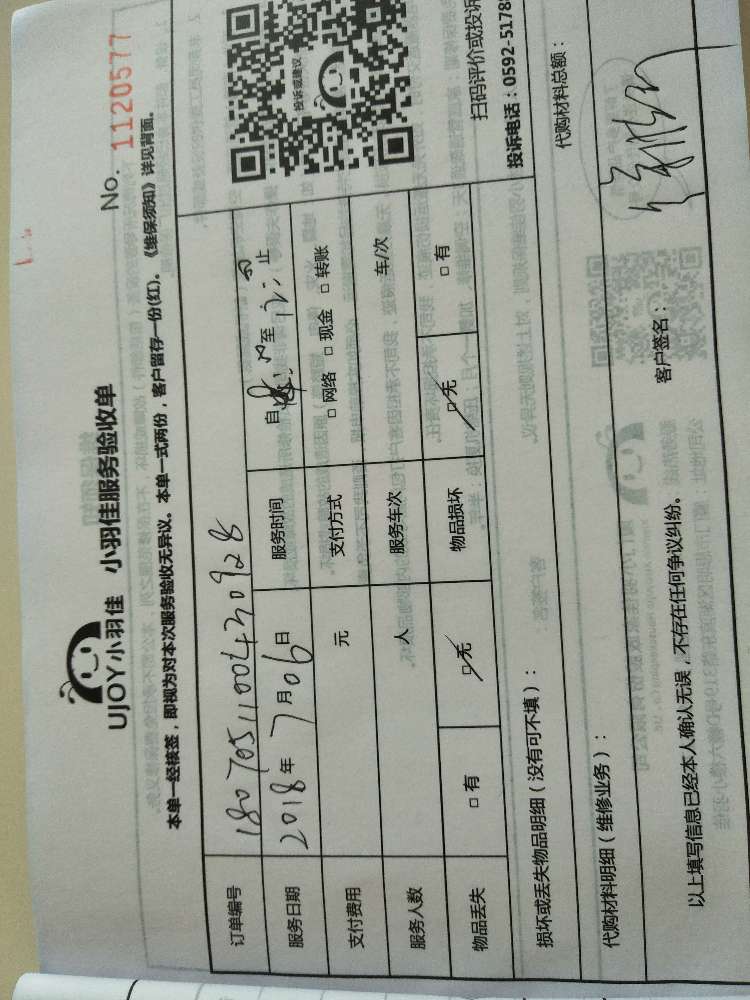 UJOY小羽佳 小羽佳服务验收单 No. 1120577
本单一经核签，即视为对本次服务验收无异议。本单一式两份，客户留存一份(红)。《维保须知》详见背面。
订单编号 180705110043 0928
服务日期 2018年7月06日 服务时间 自 至 止
支付费用 元 支付方式 □ 网络 □ 现金 □ 转账
服务人数 人 服务车次 车/次
物品丢失 □ 有 □ 无 物品损坏 □ 无 □ 有
投诉或建议
扫码评价或投诉
投诉电话：0592-5178
损坏或丢失物品明细（没有可不填）：
代购材料明细（维修业务）： 代购材料总额：
以上填写信息已经本人确认无误，不存在任何争议纠纷。 客户签名：